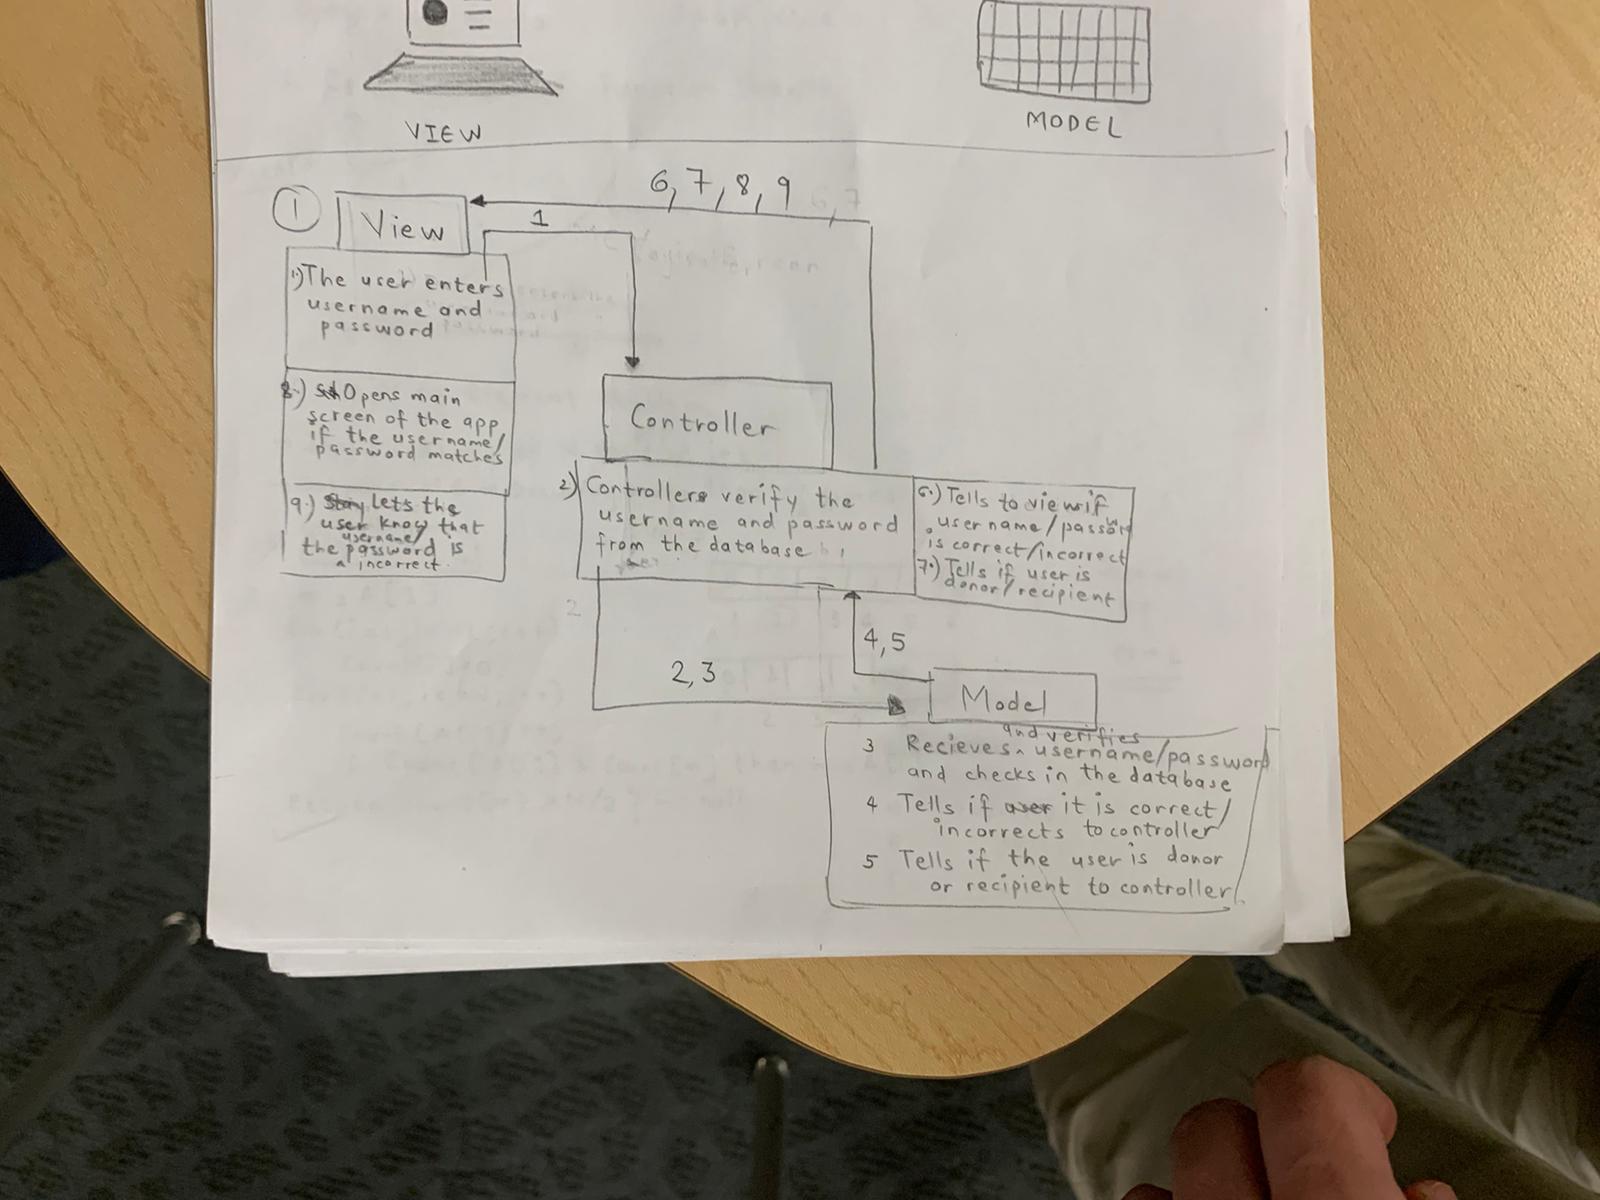 VIEW
MODEL
1
View
6, 7, 8, 9
1
1.) The user enters
username and
password
8.) Opens main
screen of the app
if the username/
password matches
9.) lets the
user know that
username/
the password is
incorrect.
Controller
2) Controllers verify the
username and password
from the database
6.) Tells to view if
username/password
is correct/incorrect
7.) Tells if user is
donor/recipient
2
4,5
2,3
Model
and verifies
3 Recieves ^ username/password
and checks in the database
4 Tells if it is correct/
incorrects to controller
5 Tells if the user is donor
or recipient to controller